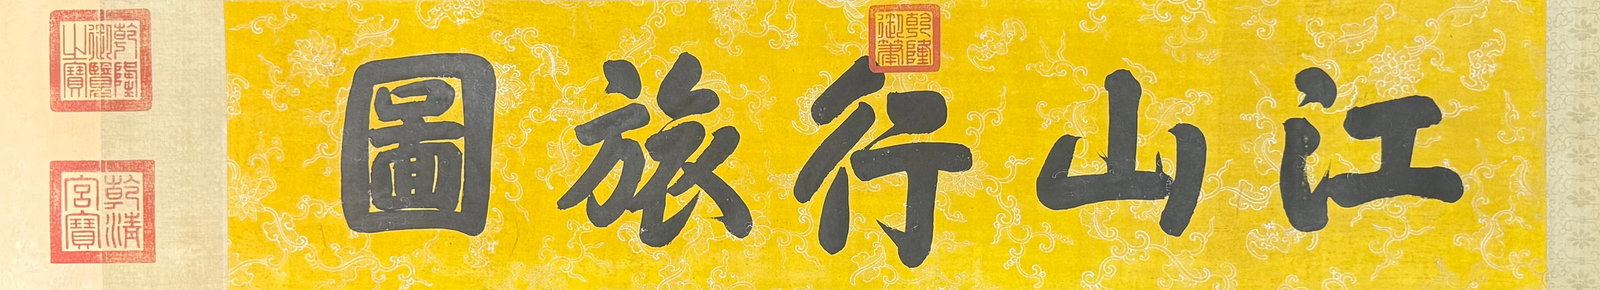 江山行旅圖
乾隆
御筆
乾隆
御覽
之寶
乾清
宮寶